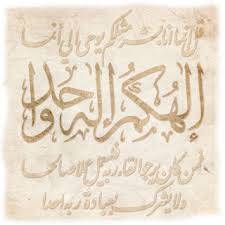 قل انما انا بشر مثلكم يوحى الي انما
الهكم اله واحد
فمن كان يرجو لقاء ربه فليعمل عملا صالحا
ولا يشرك بعبادة ربه احدا